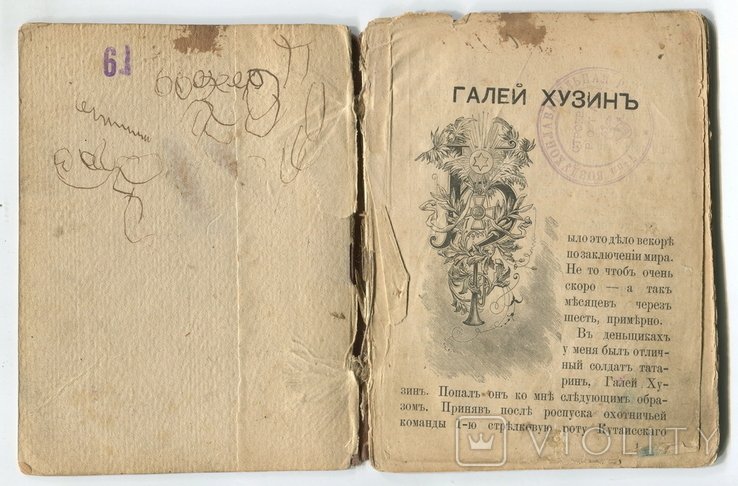 61
ГАЛЕЙ ХУЗИНЪ
ыло это дѣло вскорѣ
по заключеніи мира.
Не то чтобъ очень
скоро — а такъ
мѣсяцевъ черезъ
шесть, примѣрно.
Въ деньщикахъ
у меня былъ отлич-
ный солдатъ тата-
ринъ, Галей Ху-
зинъ. Попалъ онъ ко мнѣ слѣдующимъ обра-
зомъ. Принявъ послѣ роспуска охотничьей
команды 1-ю стрѣлковую роту Кутаисскаго
1
VIOLITY